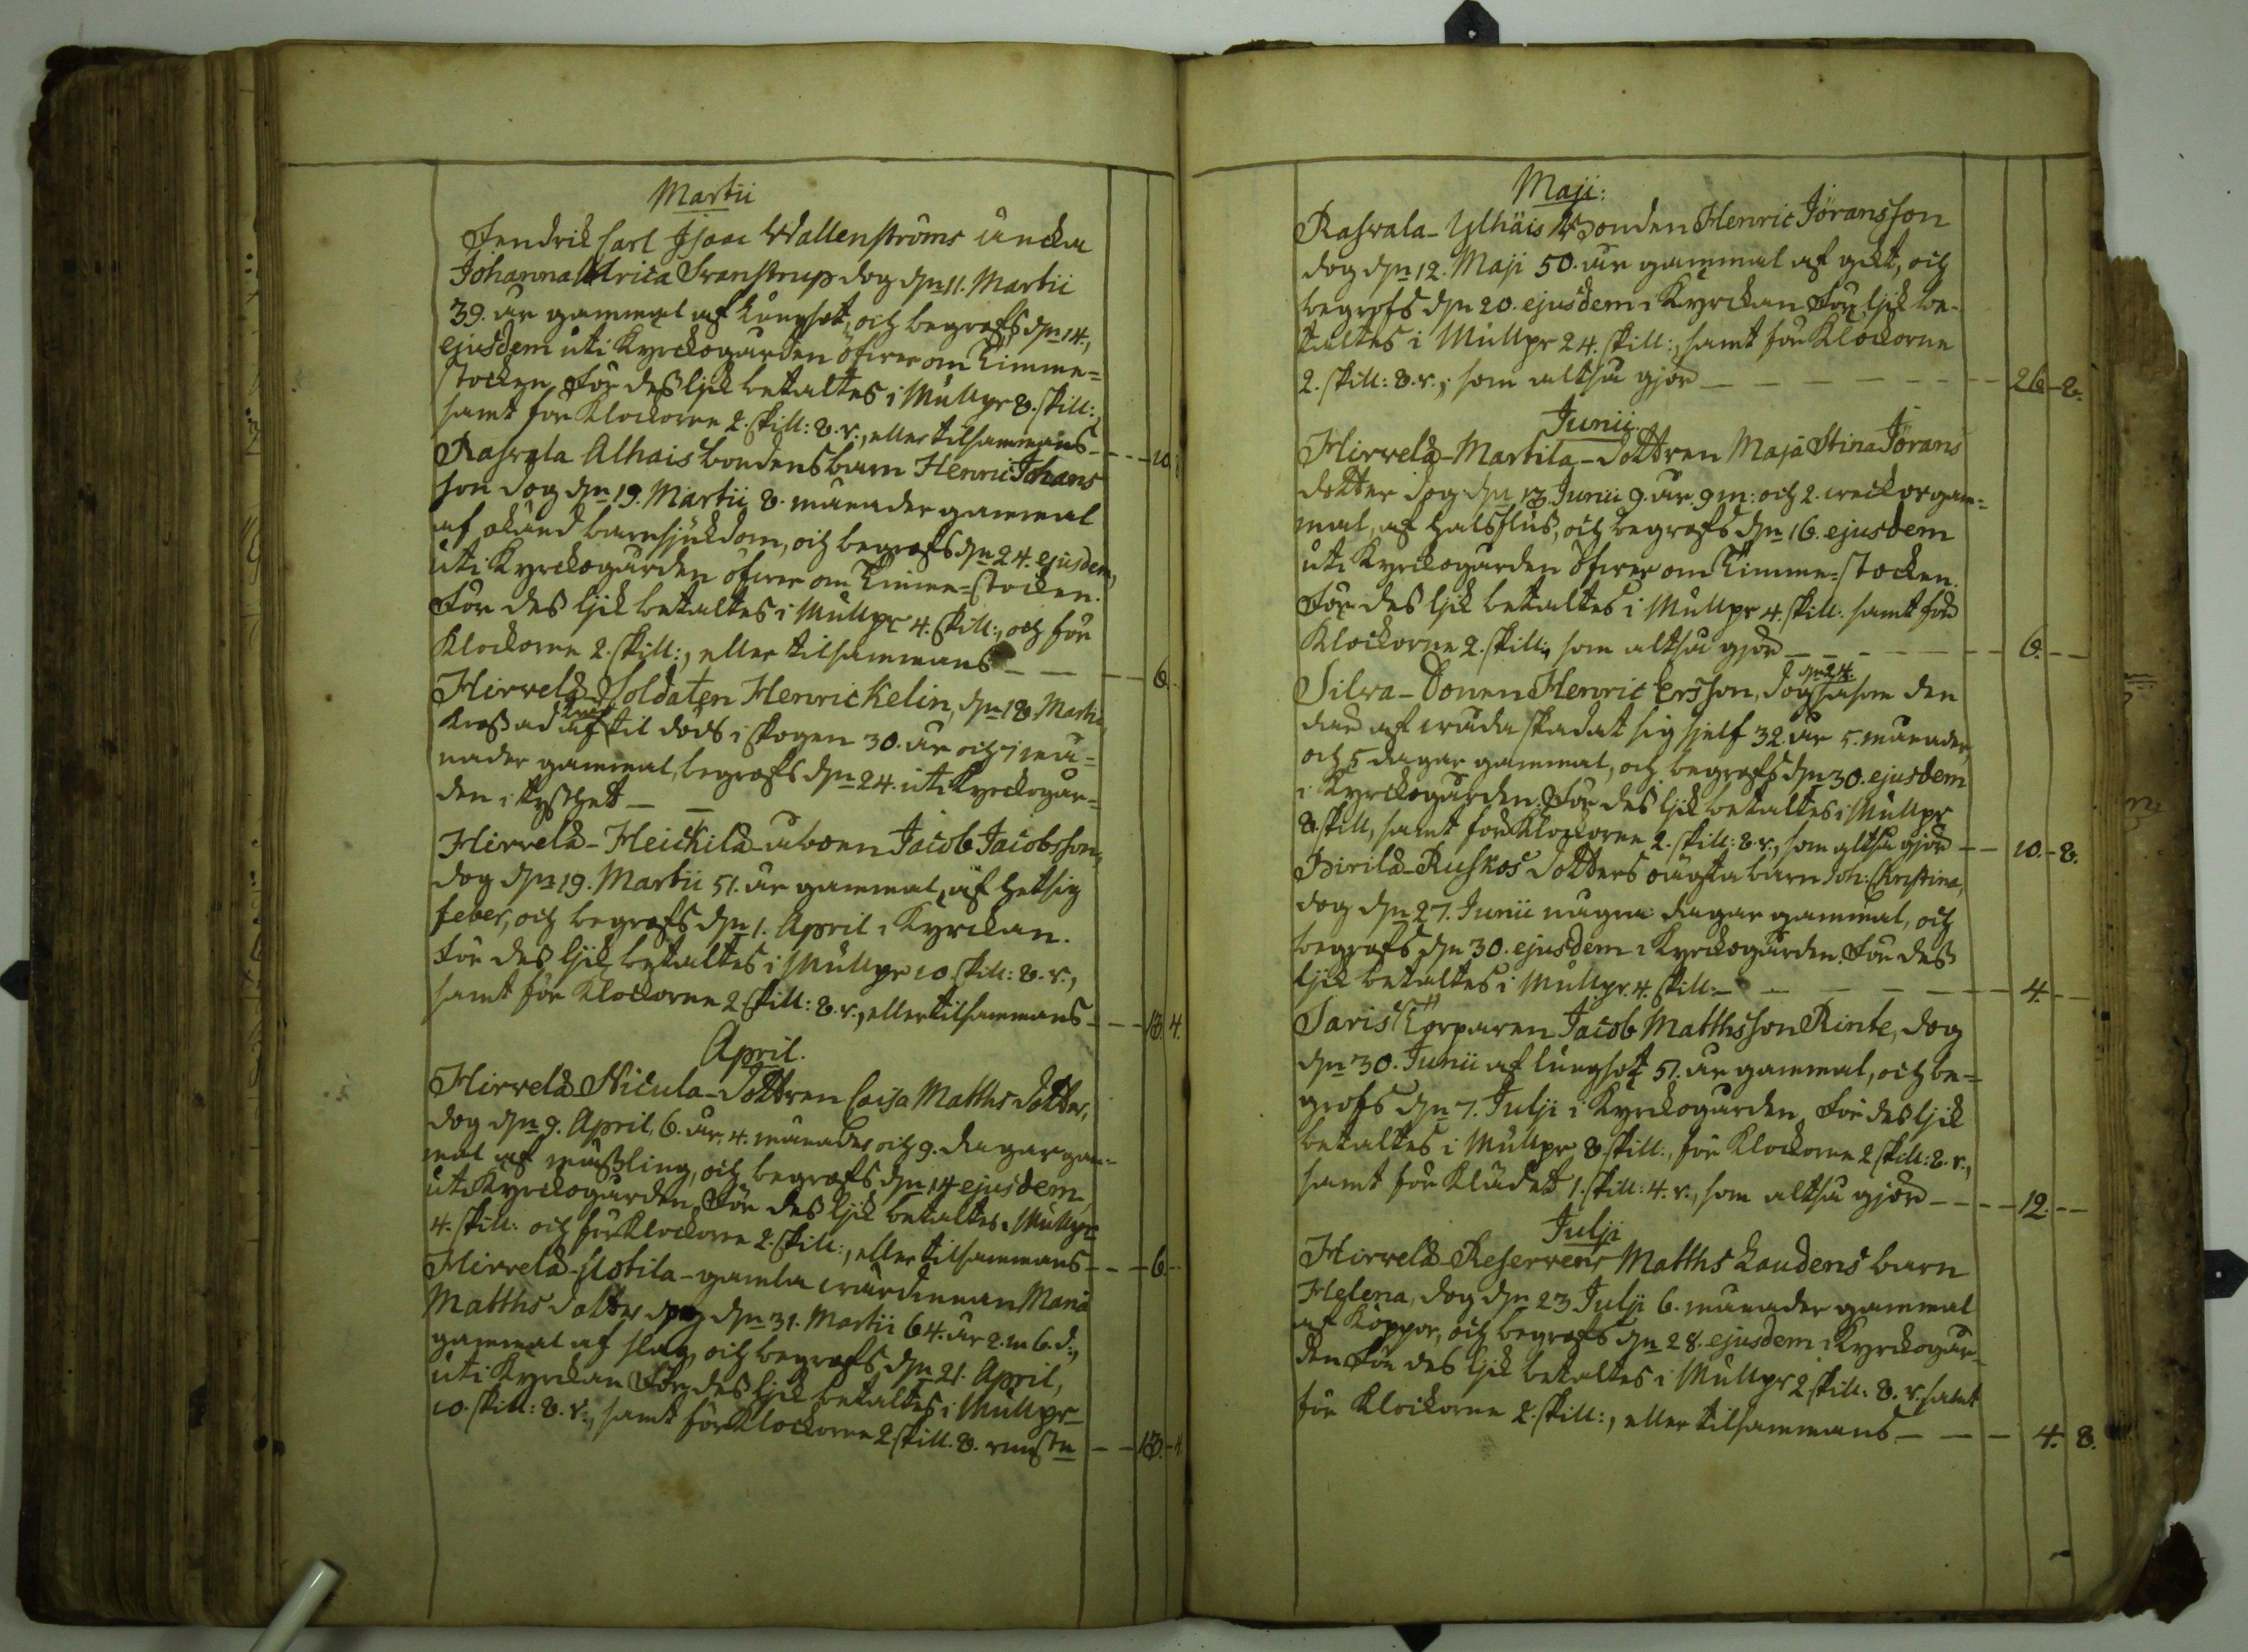 Martii
Fendrik Carl Isaac Wallenströms äncka
Johanna Ulrica Svanstrup dog dn 11. Martii
39. år gammal af lungsot, och begrafs dn 14.,
ejusdem uti Kyrckogården öfver om Timme=
stocken, För des lijk betaltes i Mullpr 8. skill:,
samt för Klockorne 2. skill: 8. r., eller tilsammans - - - 10.
Rasvala Alhais bondens barn Henric Johans
son dog dn 19. Martii 8. månader gammal
af okänd barnsjukdom, och begrafs dn 24. ejusdem,
uti Kyrckogården öfver om Timme=stocken.
För des lijk betaltes i Mullpr 4. skill:, och för
Klockorne 2. skill:, eller tilsammans - - - 6.
Hirvelä Soldaten Henric Kelin, dn 18. Martii
krossad af träd til döds i skogen 30. år och 7 må=
nader gammal, begrafs dn 24. uti Kyrckogår=
den i tysthet - -
Hirvelä-Heickilä-åboen Jacob Jacobsson,
dog dn 19. Martii 51. år gammal, af hetsig
feber, och begrafs dn 1. April i Kyrckan.
För des lijk betaltes i Mullpr 10 skill: 8. r.,
samt för Klockorne 2. skill: 8. r., eller tilsammans - - - 13. 4.
April.
Hirvelä Nicula-Dottren Caisa Matths dotter,
dog dn 9. April, 6. år, 4. månader och 9. dagar gam=
mal af mässling, och begrafs dn 14 ejusdem,
uti Kyrckogården, För des lijk betaltes i Mullpr
4. skill: och för Klockorne 2. skill:, eller tilsammans - - - 6.
Hirvelä-Uotila-gamla värdinnan Maria
Matths dotter dog dn 31. Martii 64. år 2. m 6. d:,
gammal af slag, och begrafs dn 21. April,
uti Kyrckan För des lijk betaltes i Mullpr
10. skill: 8. r:, samt för Klockorne 2 skill. 8. runstn - - 13. 4.
Maji:
Rasvala-Ylhäis Bonden Henric Jöransson
dog dn 12. Maji 50. år gammal af gikt, och
begrofs dn 20. ejusdem i Kyrckan För lijk be-
taltes i Mullpr 24. skill:, samt för Klockorne
2. skill: 8. r., som altså gjör - - - 26. 8.
Junii.
Hirvelä-Martila-Dottren Maja Stina Jörans
dotter dog dn 13. Junii 9. år. 9 m: och 2. weckor gam=
mal, af halsflus, och begrafs dn 16. ejusdem
uti Kyrckogården öfver om Timme=stocken.
För des lijk betaltes i Mullpr 4. skill. samt för
Klockorne 2. skill:, som altså gjör - - - 6. - -
Silva-Bonen Henric Ersson, dog dn 24. såsom den
där af våda skadat sig sjelf 32. år 5. månader,
och 5 dagar gammal, och begrafs dn 30. ejusdem
i Kyrckogården. För des lijk betaltes i Mullpr
8. skill, samt för Klockorne 2. skill: 8. r., som altså gjör - - 10. - 8.
Pirilä-Ruskos Dotters oägta barn Joh: Christina,
dog dn 27. Junii några dagar gammal, och
begrafs dn 30. ejusdem i Kyrckogården. För des
lijk betaltes i Mullpr. 4. skill: - - - 4. - -
Saris Torparen Jacob Matthsson Rinte, dog
dn 30. Junii af lungsot 51. år gammal, och be=
grofs dn 7. Julii i Kyrckogården, För des lijk
betaltes i Mullpr 8. skill:, för Klockorne 2 skill: 8. r.,
samt för Klädet 1. skill: 4. r., som altså gjör - - - 12. - -
Julii
Hirvelä-Reservens Matths Laudens barn
Helena, dog dn 23 Julii 6. månader gammal
af Koppor, och begrafs dn 28. ejusdem i Kyrckogår-
den För des lijk betaltes i Mullpr 2 skill: 8. r. samt
för Klockorne 2. skill:, eller tilsammans - - - 4. 8.